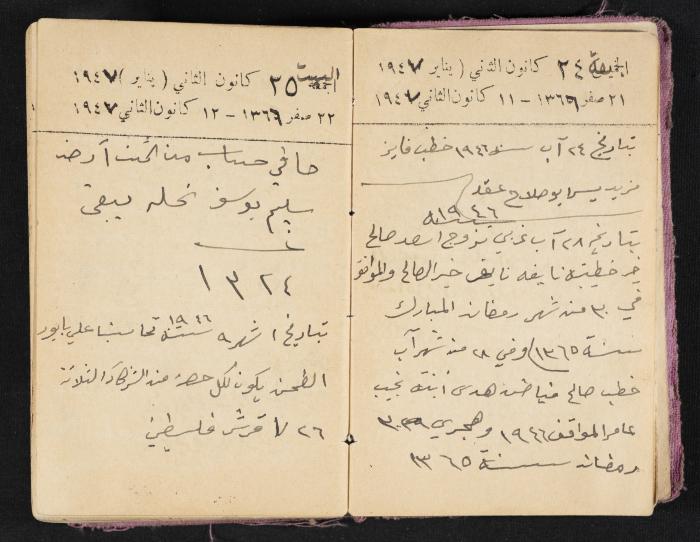 الجمعة ٢٤ كانون الثاني (يناير ١٩٤٧
٢١ صفر ١٣٦٦ – ١١ كانون الثاني ١٩٤٧
بتاريخ ٢٤ آب سنة ١٩٤٦ خطب فايز
مزيد يسرا بو صلاح عقد
سنة ١٩٤٦
بتاريخ ٢٨ آب غربي تزوج اسعد صالح
خير خطيبته نايفه نايف خير الصالح والموافق
في ٣٠ من شهر رمضان المبارك
سنة ١٣٦٥) وفي ٢٨ من شهر آب
خطب صالح فياض هدى ابنة نجيب
عامر الموافق ١٩٤٦ وهجري
رمضان سنة ١٣٦٥
السبت ٢٥ كانون الثاني (يناير) ١٩٤٧
٢٢ صفر ١٣٦٦ – ١٢ كانون الثاني ١٩٤٧
حساب من ارض
سليم يوسف نخله يبقى
١٣٢٤
بتاريخ ١ شهر ٩ سنة ١٩٤٦ تحاسبنا علي بابور
الطحن يكون لكل حصة من الشركاء الثلاثة
قرش فلسطيني